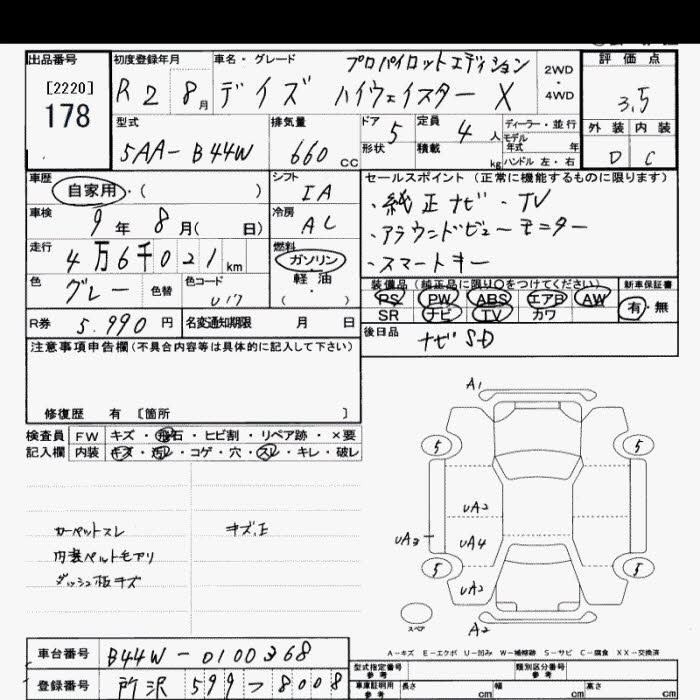 出品番号 初度登録年月 車名・グレード プロパイロットエディション 2WD・4WD 評価点
[2220]
178 R2 8月 デイズ ハイウェイスター X 3.5
型式 排気量 ドア 5 定員 4人 ディーラー・並行 外装 内装
5AA-B44W 660 cc 形状 積載 kg モデル年式 年 ハンドル 左・右 D C
車歴 自家用・( ) シフト IA セールスポイント (正常に機能するものに限ります)
車検 9年 8月( 日) 冷房 AC ・純正ナビ・TV
走行 4万6千021km 燃料 ガソリン・軽油・( ) ・アラウンドビューモニター
・スマートキー
色 グレー 色替 色コード 装備品 (純正品に限り○をつけてください) 新車保証書
PS PW ABS エアB AW 有・無
SR ナビ TV カワ
R券 5.990円 名変通知期限 月 日 後日品 ナビSD
注意事項申告欄(不具合内容等は具体的に記入して下さい)
修復歴 有 〔箇所 〕
A1
検査員 FW キズ・飛石・ヒビ割・リペア跡・×要
記入欄 内装 キズ・汚レ・コゲ・穴・スレ・キレ・破レ
5 5
UA2
カーペットスレ キズ、エ
UA3 UA4
内装ベルトモアリ
5 5
ダッシュ板キズ
UA2
スペア A2
A-キズ E-エクボ U-凹み W-補修跡 S-サビ C-腐食 XX-交換済
車台番号 B44W-0100368
型式指定番号 参考 類別区分番号 参考
登録番号 所沢 599 つ 8008
車庫証明用 参考 長さ cm 幅 cm 高さ cm